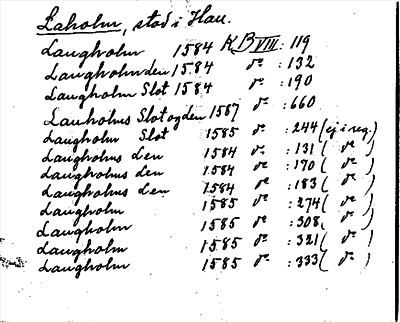 Laholm, stad i Hall.
Laugholm 1584 K B VIII: 119
Laugholm len 1584 do : 132
Laugholm Slot 1584 do : 190
Lauholms Slot og len 1587 do : 660
Laugholm Slot 1585 do : 244 (ej i reg.)
Laugholms Len 1584 do : 131 ( do )
Laugholms Len 1584 do : 170 ( do )
Laugholms Len 1584 do : 183 ( do )
Laugholm 1585 do : 274 ( do )
Laugholm 1585 do : 308, ( do )
Laugholm 1585 do : 321 ( do )
Laugholm 1585 do : 333 ( do )